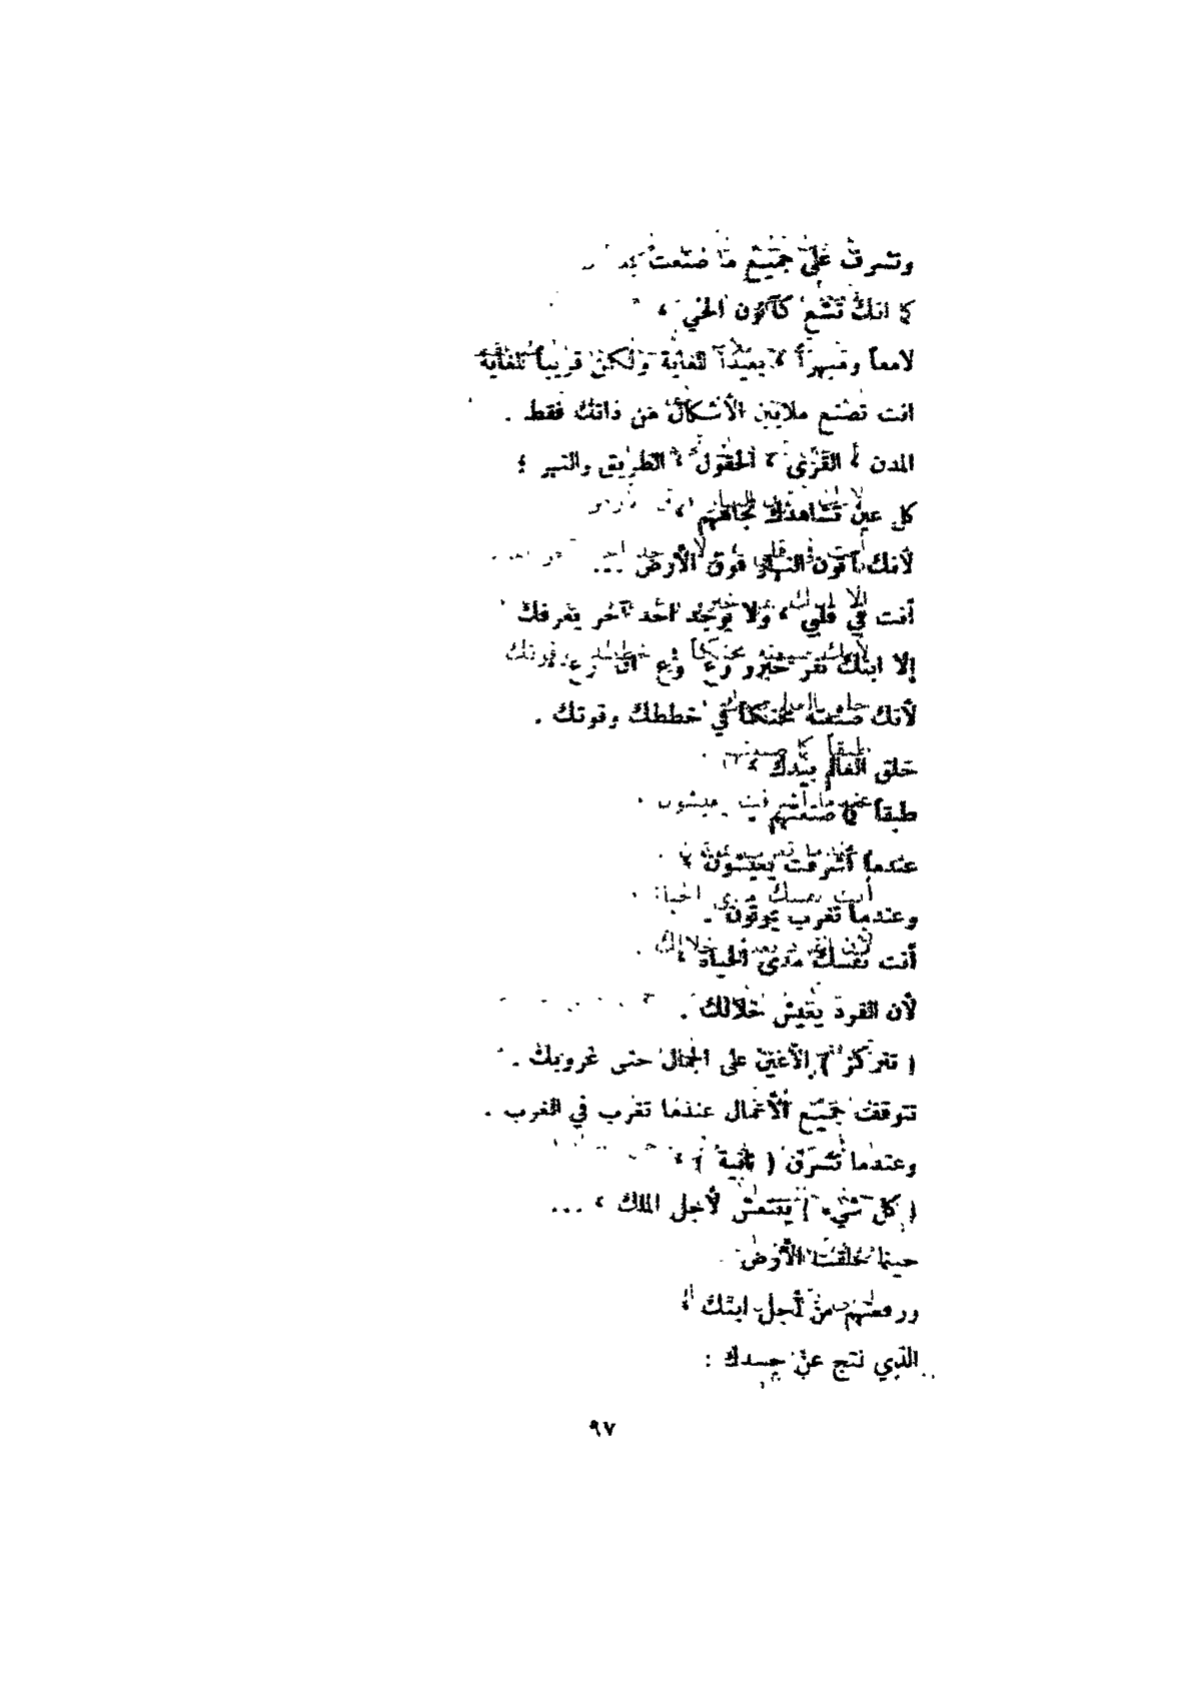 وتشرف على جميع ما صنعت
كما انك تشع كآتون الحي ،
لامعاً ومبهراً ، بعيداً للغاية ولكن قريباً للغاية
انت تصنع ملايين الأشكال من ذاتك فقط .
المدن ، القرى ، الحقول ، الطريق والنهر ؛
كل عين تشاهدك تجاههم ،
لأنك آتون النهار فوق الأرض ...
أنت في قلبي ، ولا يوجد احد آخر يعرفك
إلا ابنك نفر خبرو رع وع ان رع ،
لأنك صنعته محنكاً في خططك وقوتك .
خلق العالم بيدك ،
طبقاً كما صنعتهم .
عندما أشرقت يعيشون ،
وعندما تغرب يموتون .
أنت نفسك مدى الحياة ،
لأن الفرد يعيش خلالك .
( تتركز ) الأعين على الجمال حتى غروبك .
تتوقف جميع الأعمال عندما تغرب في المغرب .
وعندما تشرق ( ثانية ) ،
( كل شيء ) ينتعش لأجل الملك ، ...
حينما خلقت الأرض
ورفعتهم من أجل ابنك ،
الذي نتج عن جسدك :
٩٧